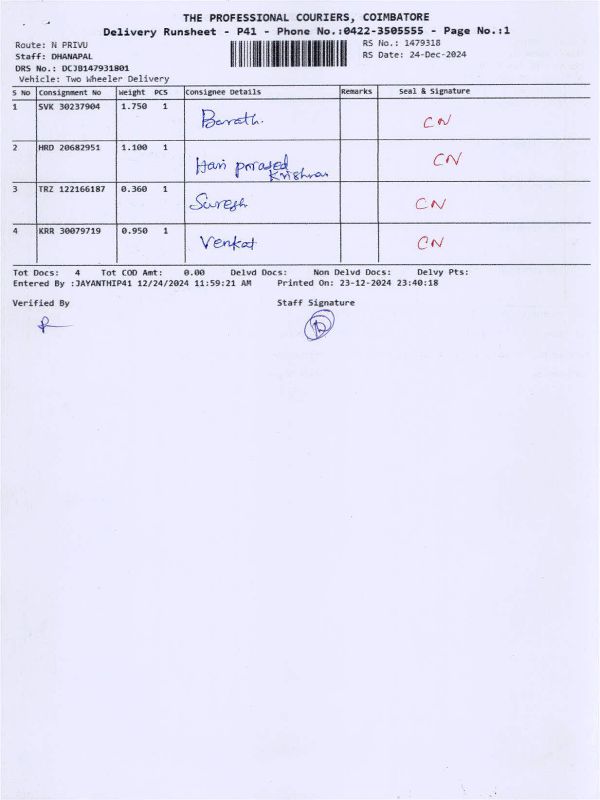 THE PROFESSIONAL COURIERS, COIMBATORE
Delivery Runsheet - P41 - Phone No.:0422-3505555 - Page No.:1
Route: N PRIVU RS No.: 1479318
Staff: DHANAPAL RS Date: 24-Dec-2024
DRS No.: DCJB147931801
Vehicle: Two Wheeler Delivery
S No Consignment No Weight PCS Consignee Details Remarks Seal & Signature
1 SVK 30237904 1.750 1 Barath. CN
2 HRD 20682951 1.100 1 Hari prorased Krishnan CN
3 TRZ 122166187 0.360 1 Suresh CN
4 KRR 30079719 0.950 1 Venkat CN
Tot Docs: 4 Tot COD Amt: 0.00 Delvd Docs: Non Delvd Docs: Delvy Pts:
Entered By :JAYANTHIP41 12/24/2024 11:59:21 AM Printed On: 23-12-2024 23:40:18
Verified By Staff Signature